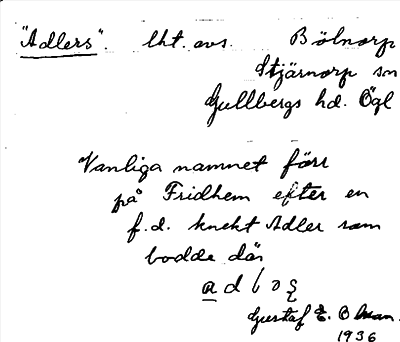 "Adlers". lht. avs. Bölnorp
Stjärnorp sn
Gullbergs hd. Ögl
Vanliga namnet förr
på Fridhem efter en
f.d. knekt Adler som
bodde där
Gustaf E.
1936